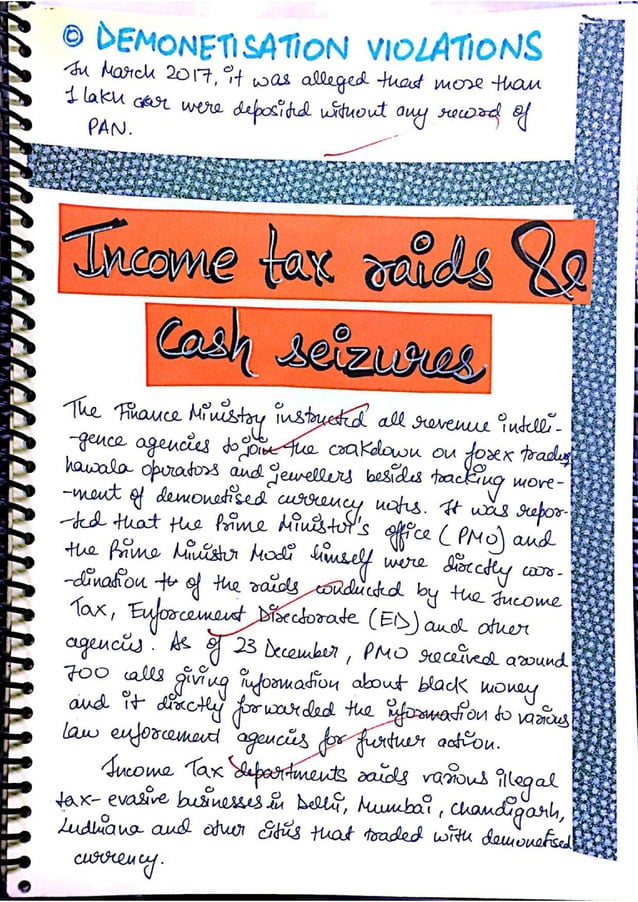 ◎ DEMONETISATION VIOLATIONS
In March 2017, it was alleged that more than
1 lakh were deposited without any record of
PAN.
Income tax raids &
cash seizures
The Finance Ministry instructed all revenue intelli-
-gence agencies to join the crakdown on forex traders
hawala operators and jewellers besides tracking move-
-ment of demonetised currency notes. It was repor-
-ted that the Prime Minister's office (PMO) and
the Prime Minister Modi himself were directly coor-
-dination of the raids conducted by the Income
Tax, Enforcement Directorate (ED) and other
agencies. As of 23 December, PMO received around
700 calls giving information about black money
and it directly forwarded the information to various
law enforcement agencies for further action.
Income Tax departments raids various illegal
tax-evasive businesses in Delhi, Mumbai, Chandigarh,
Ludhiana and other cities that traded with demonetised
currency.